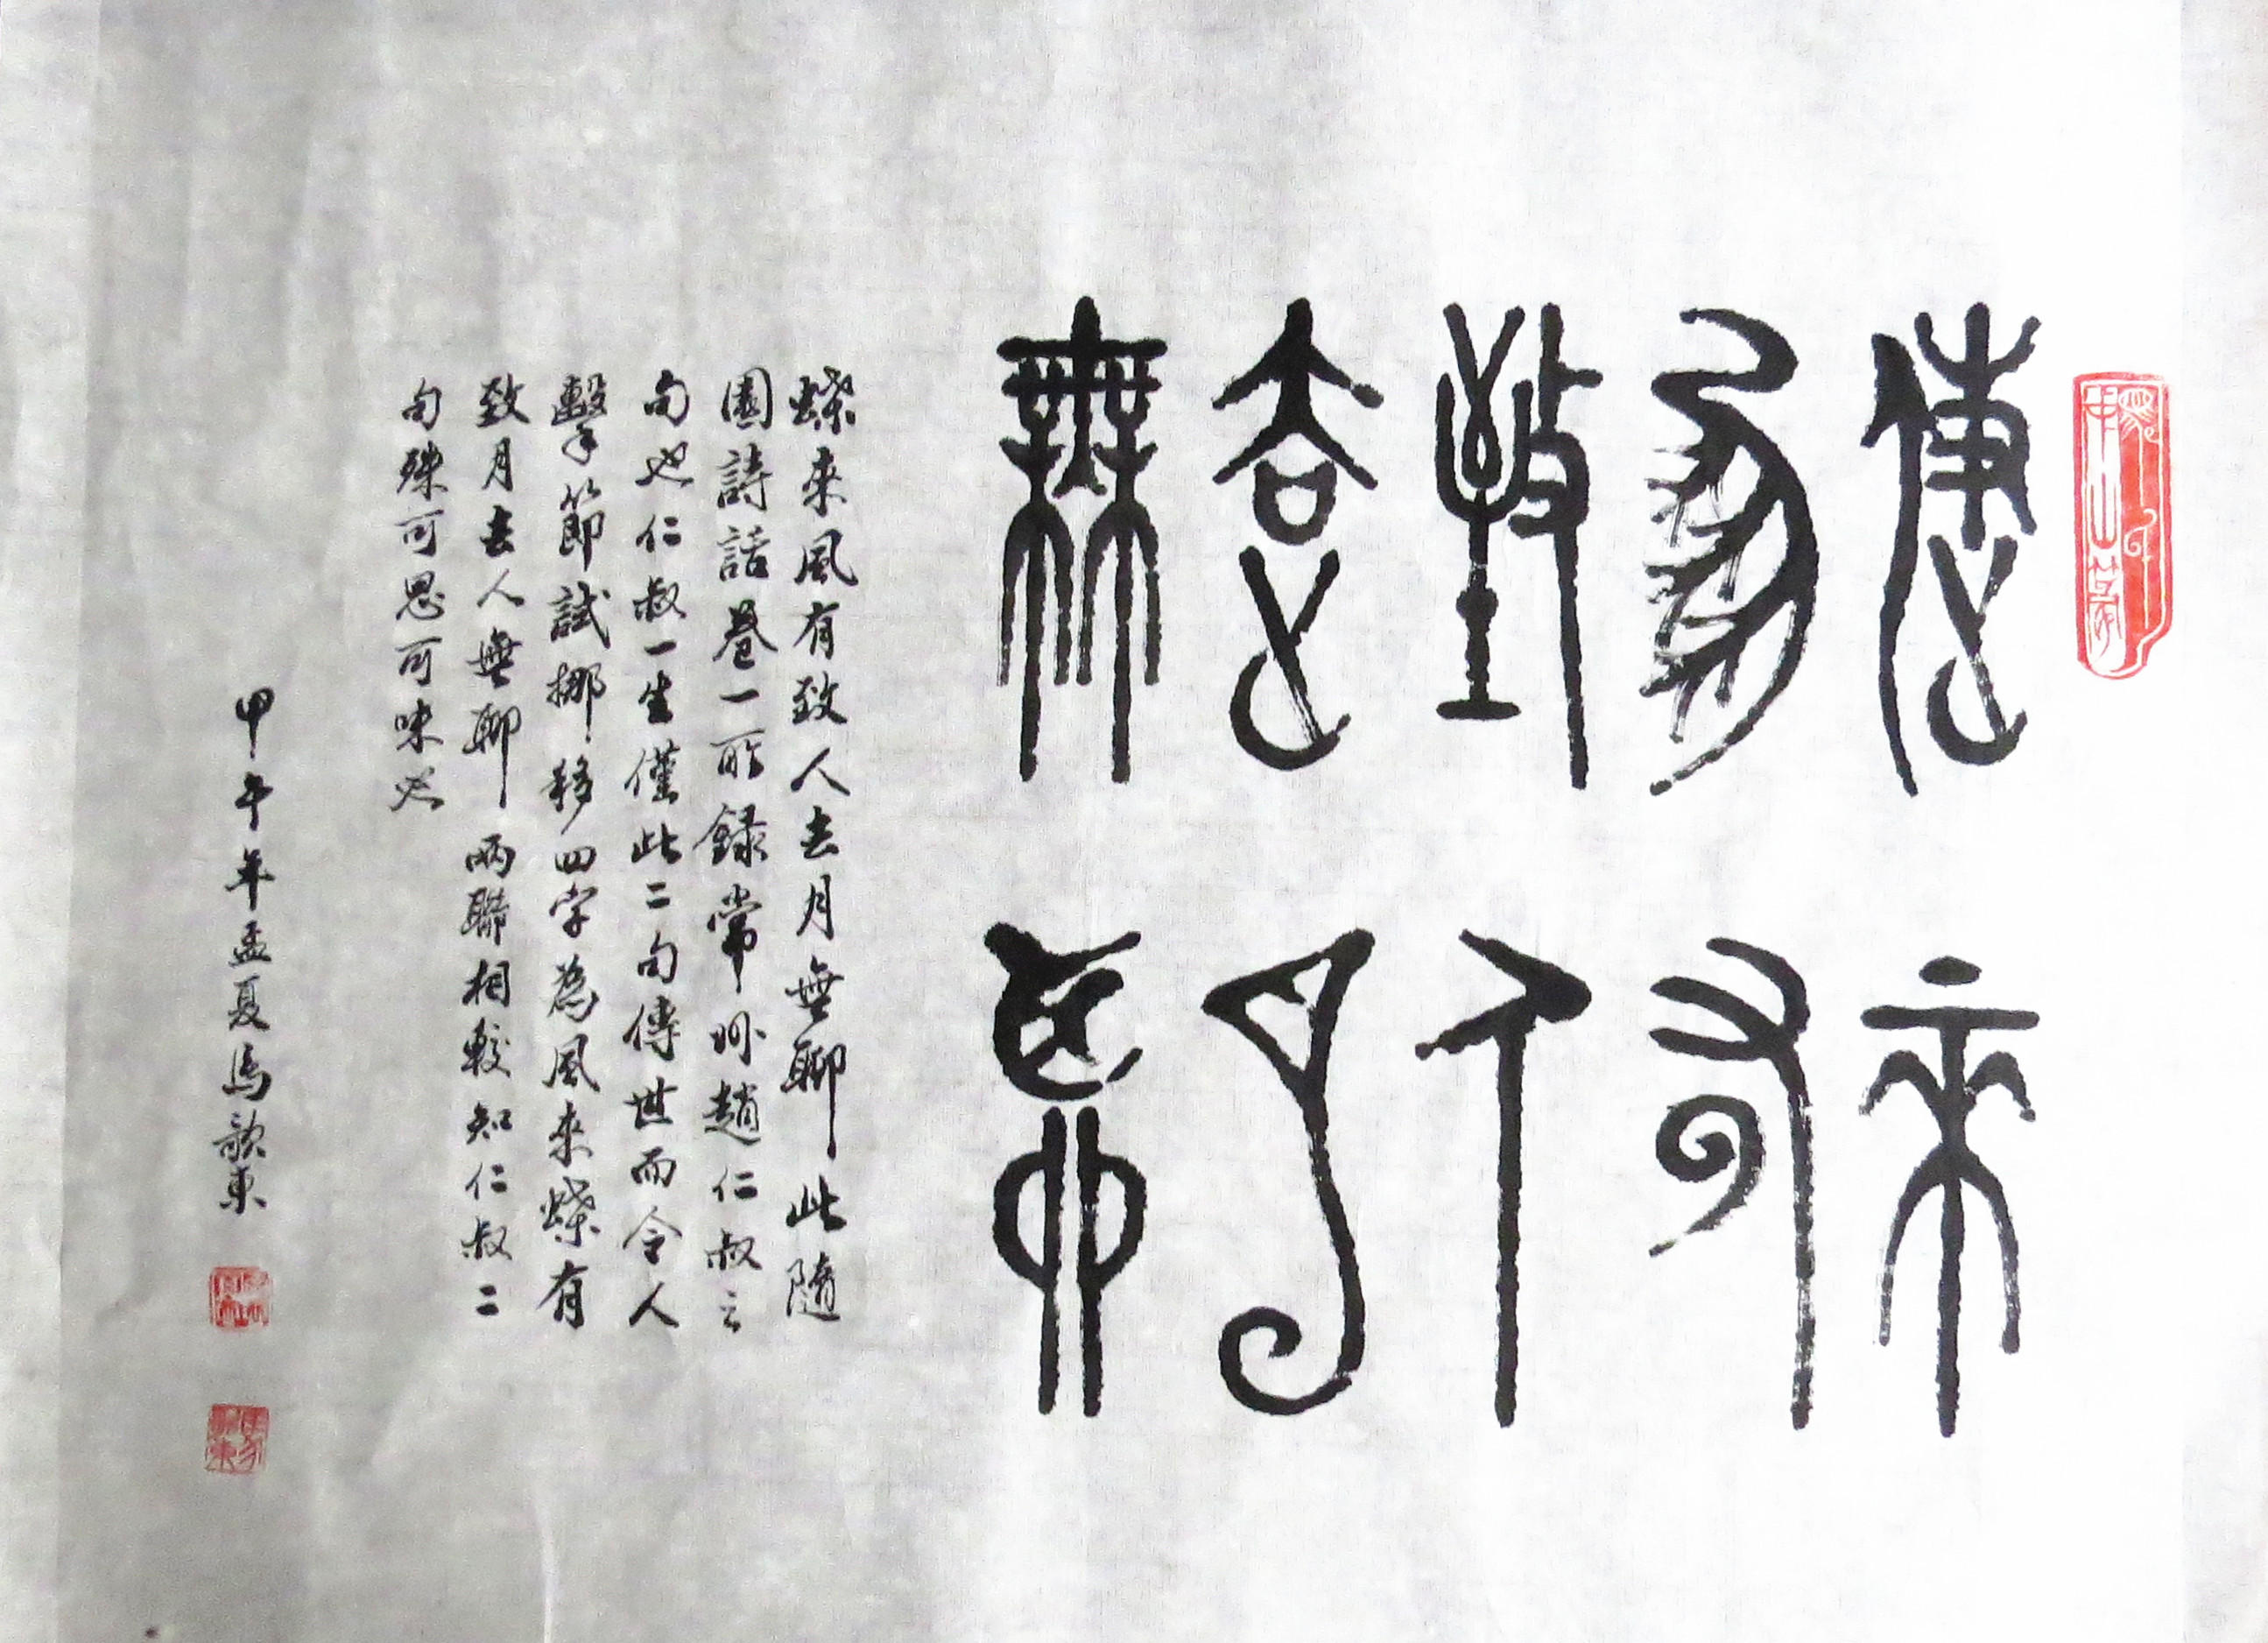 蝶來
風有
致人
去月
無聊
蝶來風有致人去月無聊此隨
園詩話卷一所錄常州趙仁叔之
句也仁叔一生僅此二句傳世而令人
擊節試挪移四字為風來蝶有
致月去人無聊兩聯相較知仁叔二
句殊可思可味矣
甲午年孟夏馬歌東